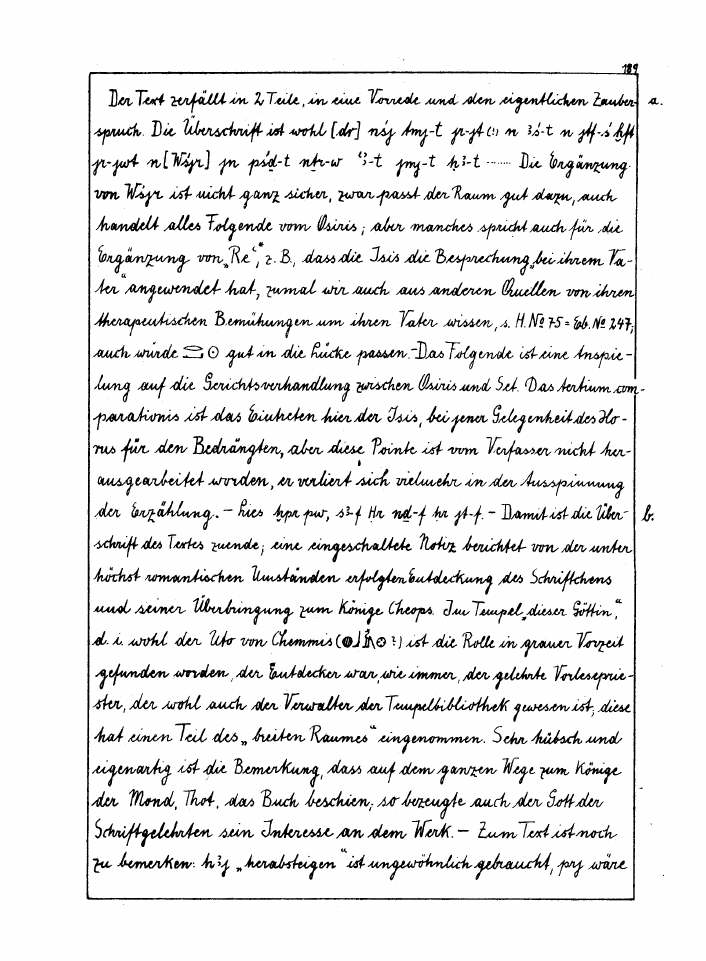 189
Der Text zerfällt in 2 Teile, in eine Vorrede und den eigentlichen Zauber- a.
spruch. Die Überschrift ist wohl [dr] nśj tmj-t jr-jt (!) n ꜣś-t n jtf-ś ḫft
jr-jwt n [Wśjr] jn pśḏ-t nṯr-w ꜥꜣ-t jmj-t ḥꜣ-t ······· Die Ergänzung
von Wśjr ist nicht ganz sicher, zwar passt der Raum gut dazu, auch
handelt alles Folgende vom Osiris; aber manches spricht auch für die
Ergänzung von „Reꜥ“, z. B., dass die Isis die Besprechung „bei ihrem Va-
ter“ angewendet hat, zumal wir auch aus anderen Quellen von ihren
therapeutischen Bemühungen um ihren Vater wissen, s. H. № 75 = Eb. № 247;
auch würde gut in die Lücke passen. – Das Folgende ist eine Anspie-
lung auf die Gerichtsverhandlung zwischen Osiris und Set. Das tertium com-
parationis ist das Eintreten hier der Isis, bei jener Gelegenheit des Ho-
rus für den Bedrängten, aber diese Pointe ist vom Verfasser nicht her-
ausgearbeitet worden, er verliert sich vielmehr in der Ausspinnung
der Erzählung. – Lies ḫpr pw, sꜣ-f Ḥr nḏ-f ḥr jt-f. – Damit ist die Über- b.
schrift des Textes zuende; eine eingeschaltete Notiz berichtet von der unter
höchst romantischen Umständen erfolgten Entdeckung des Schriftchens
und seiner Überbringung zum Könige Cheops. Im Tempel „dieser Göttin“,
d. i. wohl der Uto von Chemmis ( ?) ist die Rolle in grauer Vorzeit
gefunden worden, der Entdecker war, wie immer, der gelehrte Vorleseprie-
ster, der wohl auch der Verwalter der Tempelbibliothek gewesen ist; diese
hat einen Teil des „breiten Raumes“ eingenommen. Sehr hübsch und
eigenartig ist die Bemerkung, dass auf dem ganzen Wege zum Könige
der Mond, Thot, das Buch beschien; so bezeugte auch der Gott der
Schriftgelehrten sein Interesse an dem Werk. – Zum Text ist noch
zu bemerken: hꜣj „herabsteigen“ ist ungewöhnlich gebraucht, prj wäre